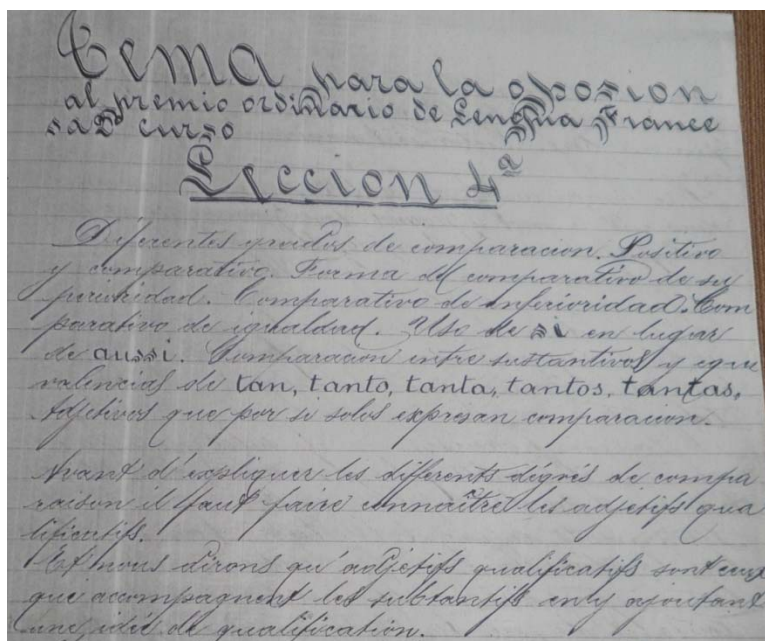 Tema para la oposicion
al premio ordinario de Lengua France
sa 2º curso
Leccion 4ª
Diferentes grados de comparacion. Positivo
y comparativo. Forma del comparativo de su
perioridad. Comparativo de inferioridad. Com
parativo de igualdad. Uso de si en lugar
de aussi. Comparacion entre sustantivos y equi
valencias de tan, tanto, tanta, tantos, tantas.
Adjetivos que por si solos expresan comparacion.
Avant d'expliquer les differents dégrés de compa
raison il faut faire connaître les adjetifs qua
lificatifs.
Et nous dirons qu'adjétifs qualificatifs sont ceux
que accompagnent les subtantifs en y ajoutant
une idée de qualification.